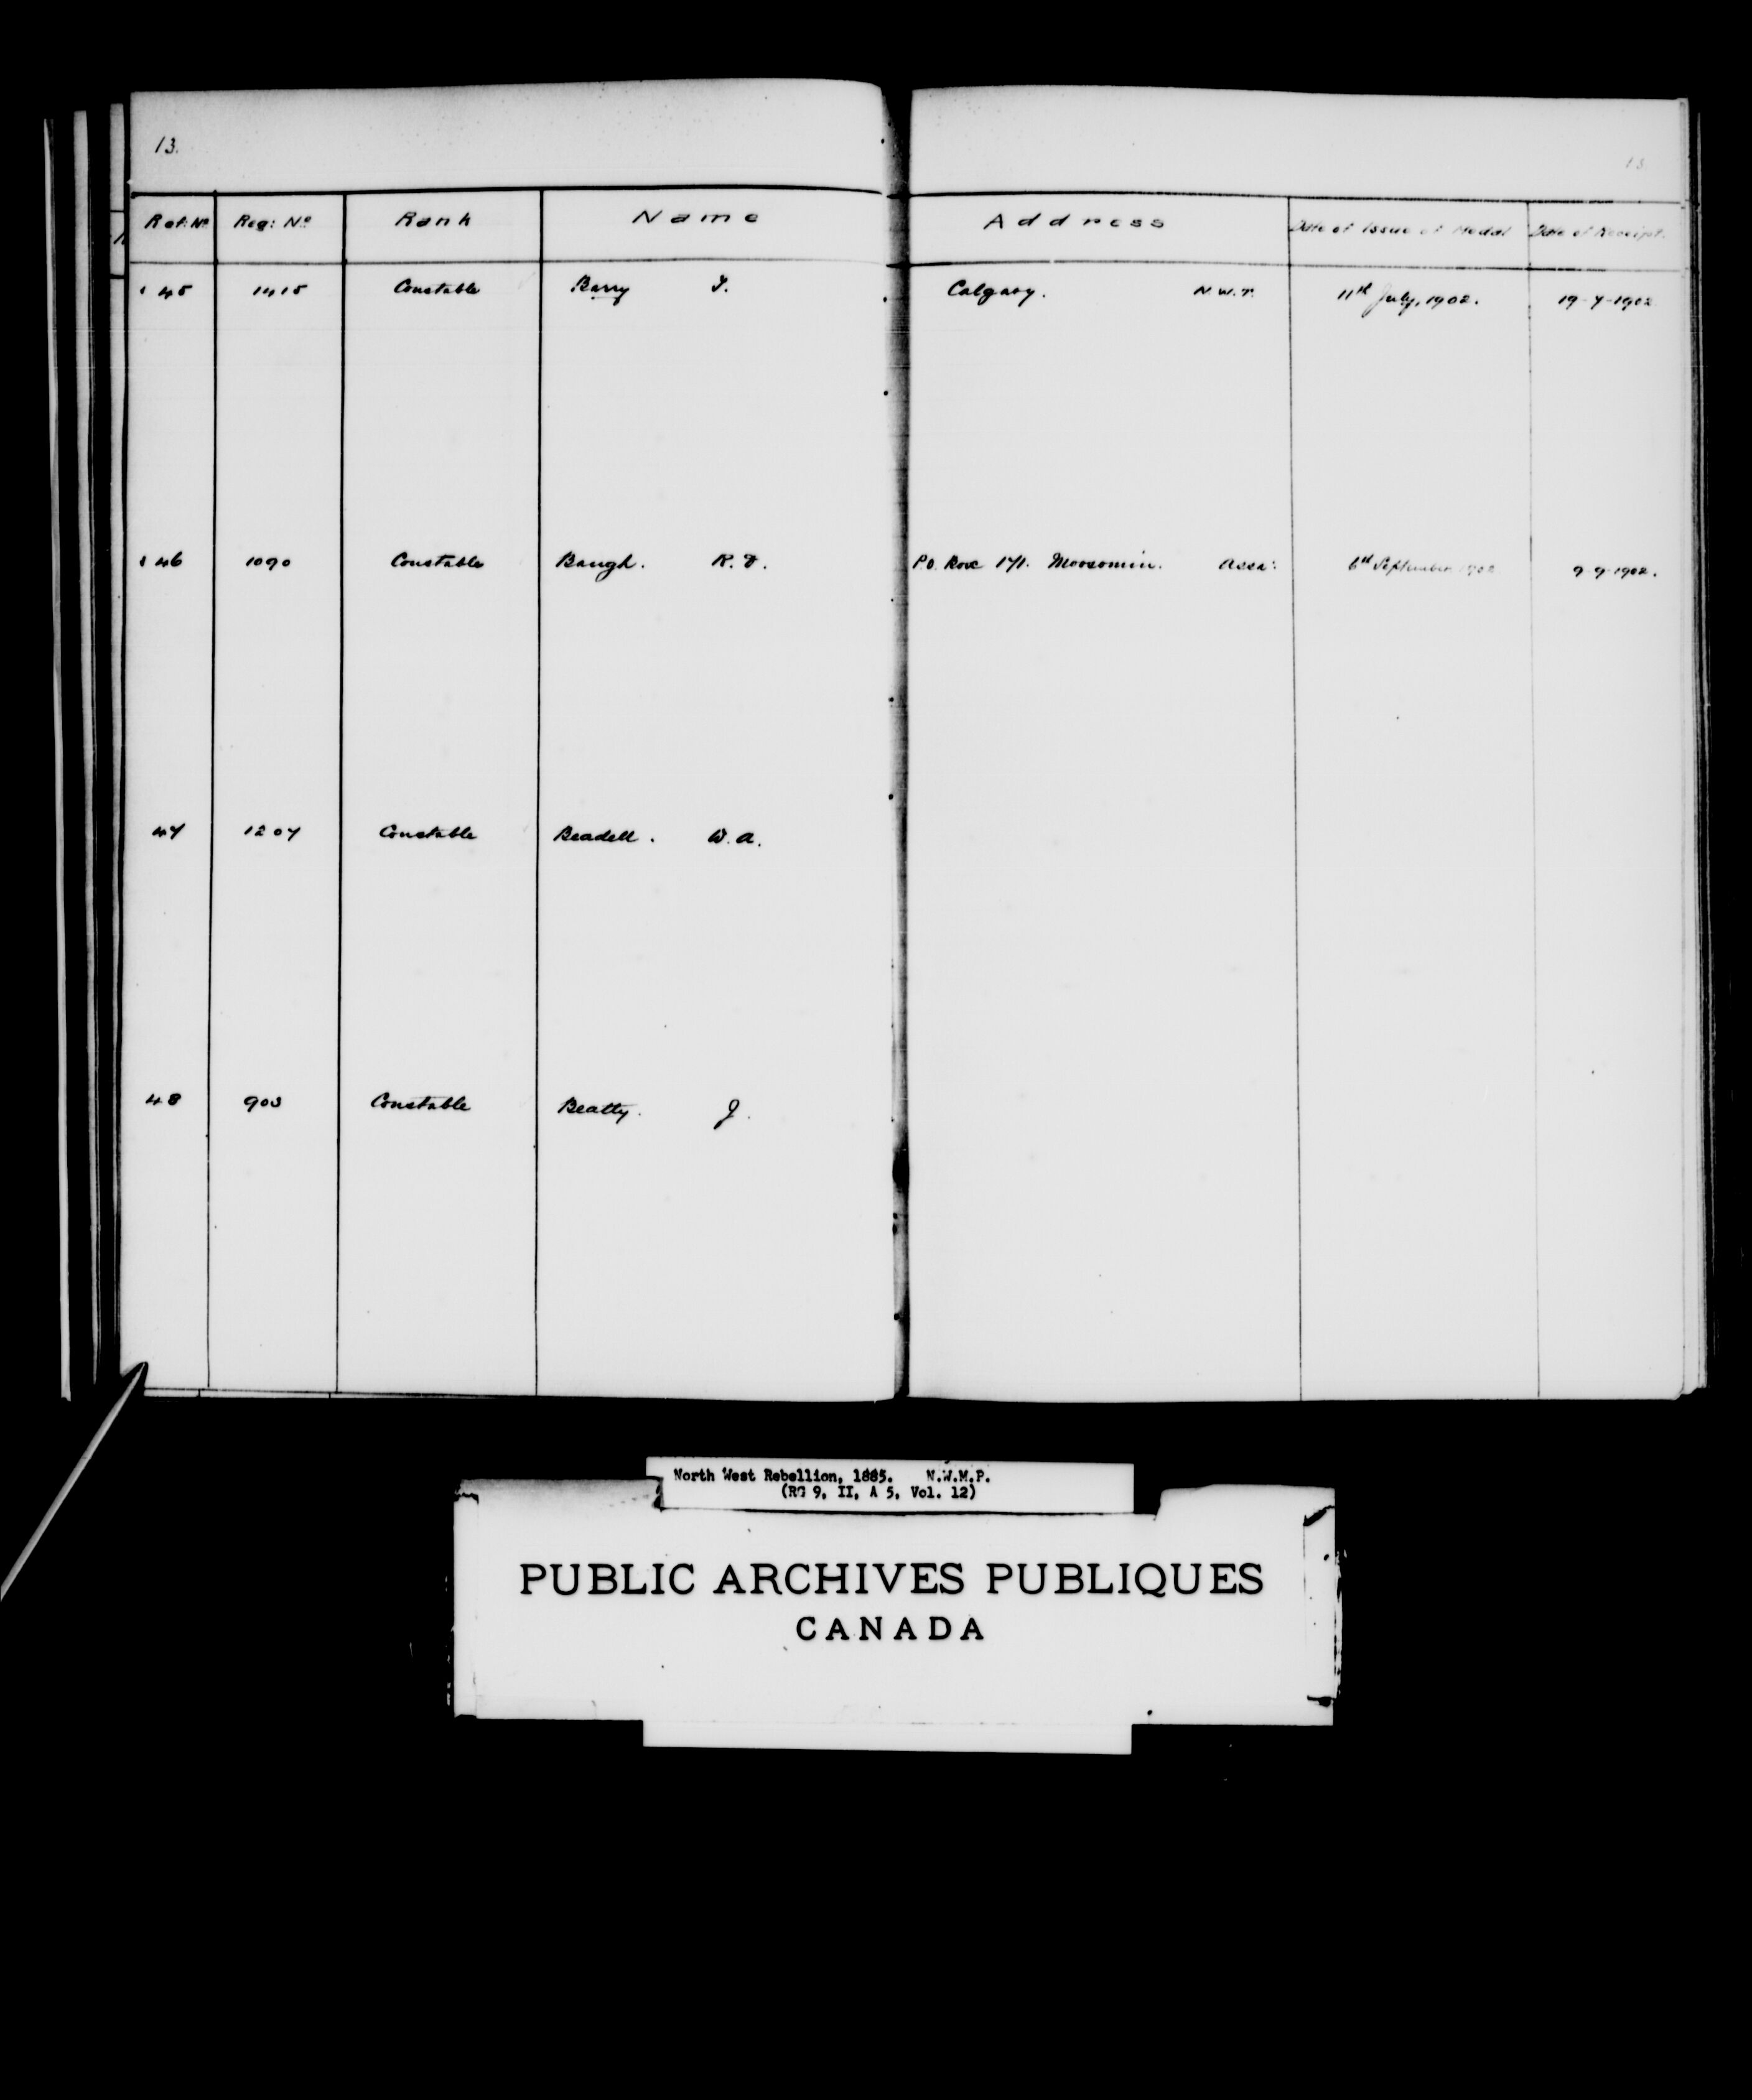 13.
13
Ref: No Reg: No Rank Name Address Date of Issue of Medal Date of Receipt.
45 1415 Constable Barry Calgary. N.W.T. 11th July, 1902. 19-7-1902
46 1090 Constable Baugh. R. D. P.O. Box 171. Moosomin. Assa: 6th September 1902 9-9-1902.
47 1207 Constable Beadell. W. A.
48 903 Constable Beatty. J.
North West Rebellion, 1885. N.W.M.P.
(RG 9, II, A 5, Vol. 12)
PUBLIC ARCHIVES PUBLIQUES
CANADA